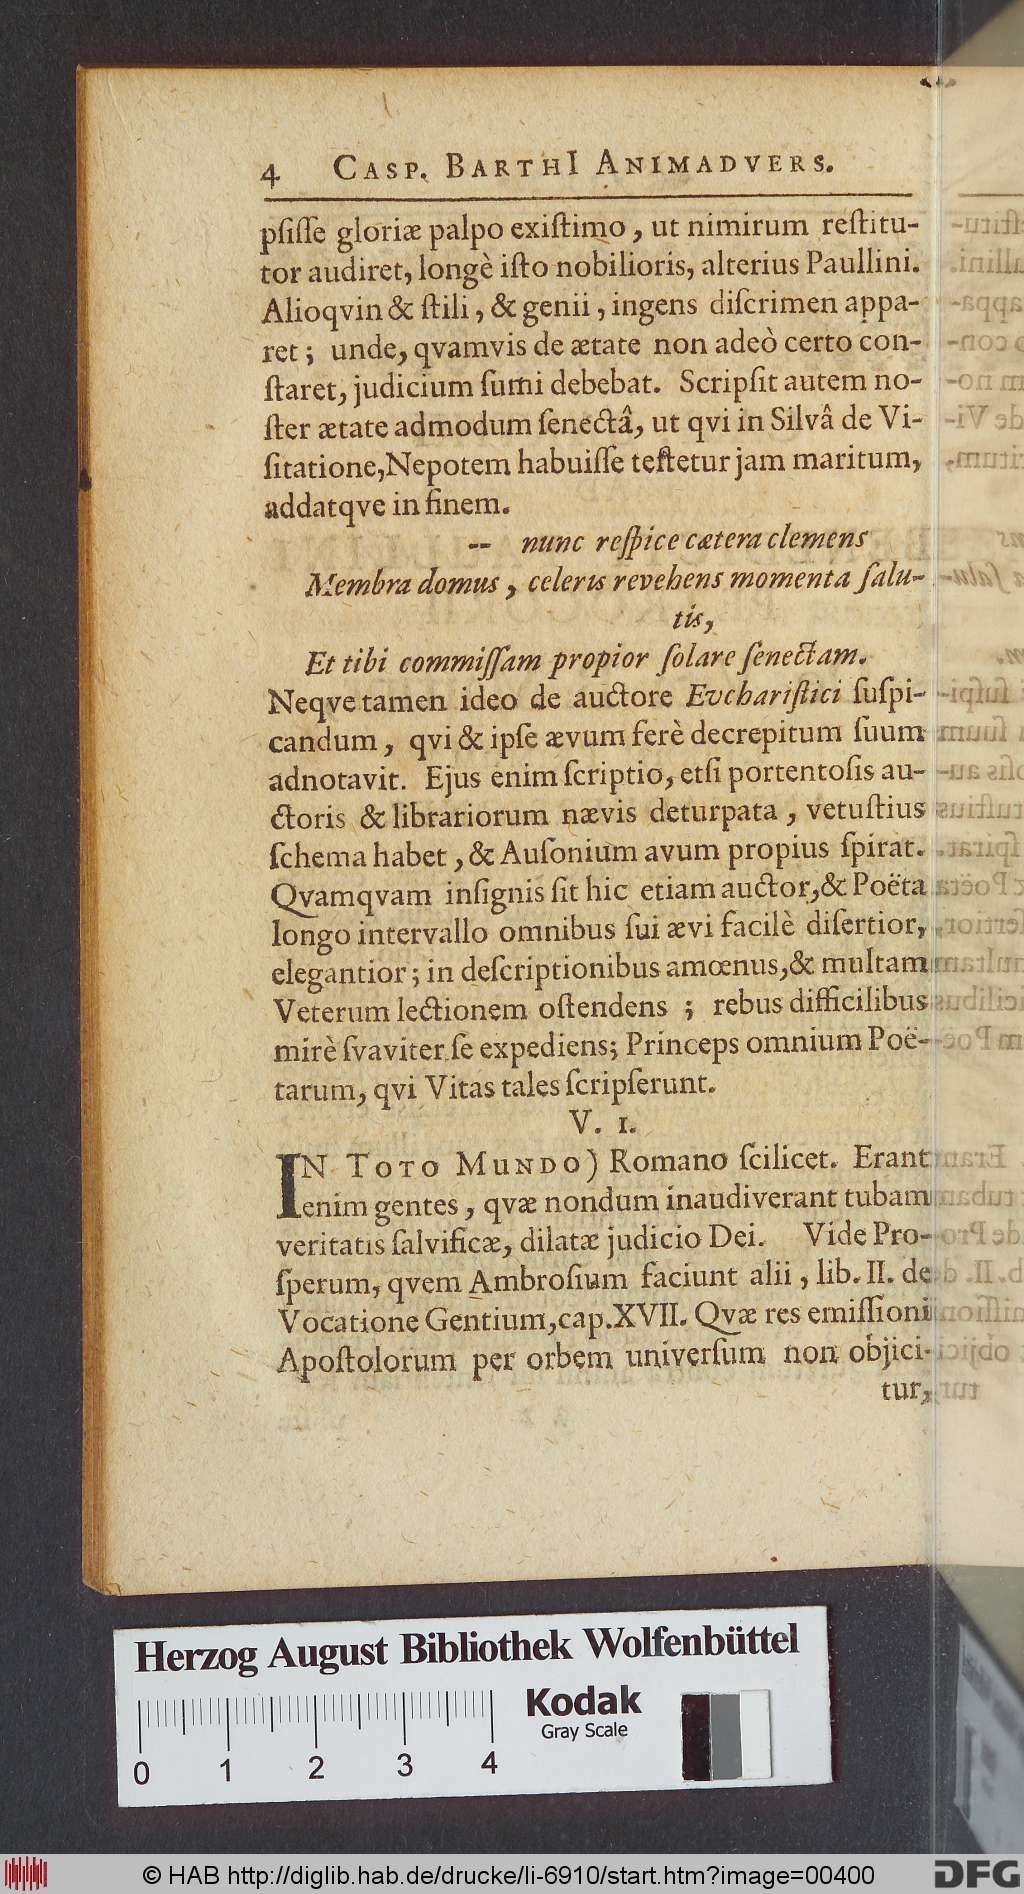 4 CASP. BARTHI ANIMADVERS.
pſiſſe gloriæ palpo exiſtimo, ut nimirum reſtitu-
tor audiret, longè iſto nobilioris, alterius Paullini.
Alioqvin & ſtili, & genii, ingens diſcrimen appa-
ret; unde, qvamvis de ætate non adeò certo con-
ſtaret, judicium ſumi debebat. Scripſit autem no-
ſter ætate admodum ſenectâ, ut qvi in Silvâ de Vi-
ſitatione, Nepotem habuiſſe teſtetur jam maritum,
addatqve in finem.
-- nunc reſpice cætera clemens
Membra domus, celeris revehens momenta ſalu-
tis,
Et tibi commiſſam propior ſolare ſenectam.
Neqve tamen ideo de auctore Evchariſtici ſuſpi-
candum, qvi & ipſe ævum ferè decrepitum ſuum
adnotavit. Ejus enim ſcriptio, etſi portentoſis au-
ctoris & librariorum nævis deturpata, vetuſtius
ſchema habet, & Auſonium avum propius ſpirat.
Qvamqvam inſignis ſit hic etiam auctor, & Poëta
longo intervallo omnibus ſui ævi facilè diſertior,
elegantior; in deſcriptionibus amœnus, & multam
Veterum lectionem oſtendens; rebus difficilibus
mirè ſvaviter ſe expediens; Princeps omnium Poë-
tarum, qvi Vitas tales ſcripſerunt.
V. 1.
IN TOTO MUNDO) Romano ſcilicet. Erant
enim gentes, qvæ nondum inaudiverant tubam
veritatis ſalvificæ, dilatæ judicio Dei. Vide Pro-
ſperum, qvem Ambroſium faciunt alii, lib. II. de
Vocatione Gentium, cap. XVII. Qvæ res emiſſioni
Apoſtolorum per orbem univerſum non objici-
tur,
Herzog August Bibliothek Wolfenbüttel
Kodak
Gray Scale
0 1 2 3 4
© HAB http://diglib.hab.de/drucke/li-6910/start.htm?image=00400
DFG